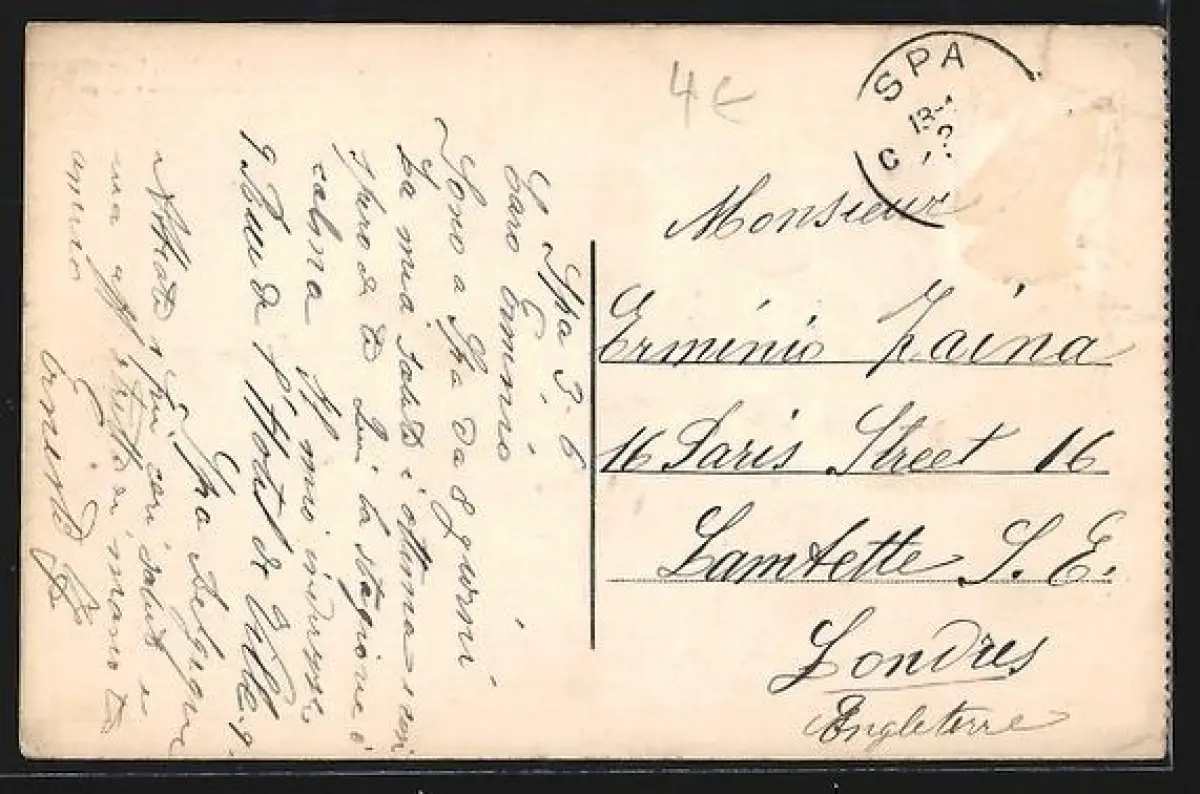 4€
SPA
13-
C
Monsieur
Erminio Zaina
16 Paris Street 16
Lambette S. E.
Londres
Angleterre
Spa 3. 6
Caro Erminio
Sono a Spa da 8 giorni
La mia salute è ottima e così
spero di te Qui la stagione è
calma Il mio indirizzo
9 Rue de l'Hotel de Ville. 9.
Spa Belgique
saluti e
una stretta di mano
amico